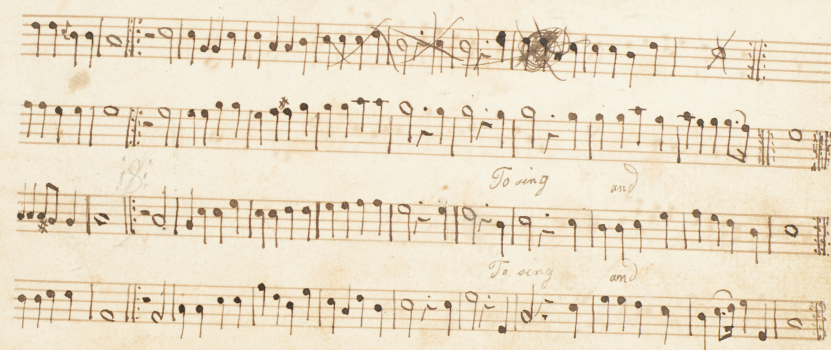 To sing and
To sing and